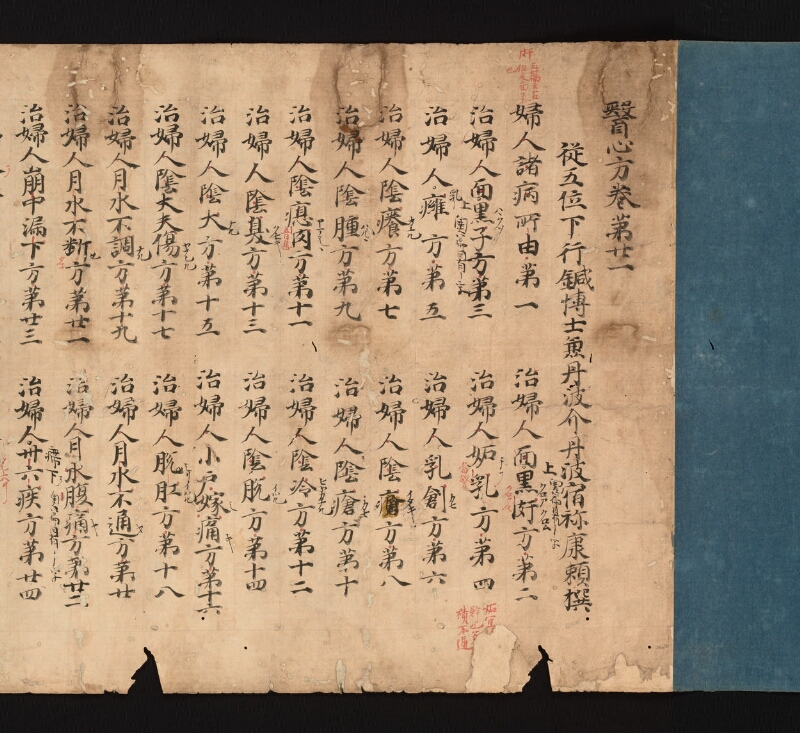 醫心方卷第廿一
從五位下行鍼博士兼丹波介丹波宿祢康賴撰
婦人諸病所由第一 治婦人面黑皯方第二
治婦人面黑子方第三 治婦人妬乳方第四
治婦人癰方第五 治婦人乳創方第六
治婦人陰癢方第七 治婦人陰痛方第八
治婦人陰腫方第九 治婦人陰瘡方第十
治婦人陰瘜肉方第十一 治婦人陰冷方第十二
治婦人陰臭方第十三 治婦人陰脫方第十四
治婦人陰大方第十五 治婦人小戶嫁痛方第十六
治婦人陰丈夫傷方第十七 治婦人脫肛方第十八
治婦人月水不調方第十九 治婦人月水不通方第廿
治婦人月水不断方第廿一 治婦人月水腹痛方第廿二
治婦人崩中漏下方第廿三 治婦人卅六疾方第廿四